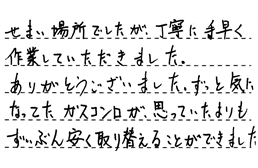 せまい場所でしたが、丁寧に手早く
作業していただきました。
ありがとうございました。ずっと気に
なってた ガスコンロが、思っていたよりも
ずいぶん安く取り替えることができました